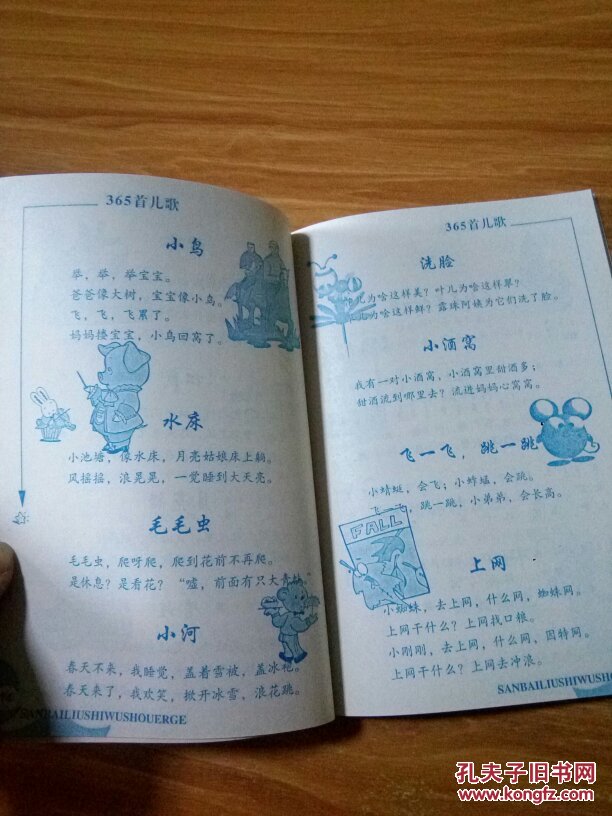 365首儿歌
小鸟
举，举，举宝宝。
爸爸像大树，宝宝像小鸟。
飞，飞，飞累了。
妈妈搂宝宝，小鸟回窝了。
水床
小池塘，像水床，月亮姑娘床上躺。
风摇摇，浪晃晃，一觉睡到大天亮。
毛毛虫
毛毛虫，爬呀爬，爬到花前不再爬。
是休息？是看花？“嘘，前面有只大青蛙。”
小河
春天不来，我睡觉，盖着雪被，盖冰袍。
春天来了，我欢笑，掀开冰雪，浪花跳。
SANBAILIUSHIWUSHOUERGE
365首儿歌
洗脸
儿为啥这样美？叶儿为啥这样翠？
儿为啥这样鲜？露珠阿姨为它们洗了脸。
小酒窝
我有一对小酒窝，小酒窝里甜酒多；
甜酒流到哪里去？流进妈妈心窝窝。
飞一飞，跳一跳
小蜻蜓，会飞；小蚱蜢，会跳。
飞一飞，跳一跳，小弟弟，会长高。
FALL
上网
小蜘蛛，去上网，什么网，蜘蛛网。
上网干什么？上网找口粮。
小刚刚，去上网，什么网，因特网。
上网干什么？上网去冲浪。
SANBAILIUSHIWUSHOU
孔夫子旧书网
www.kongfz.com